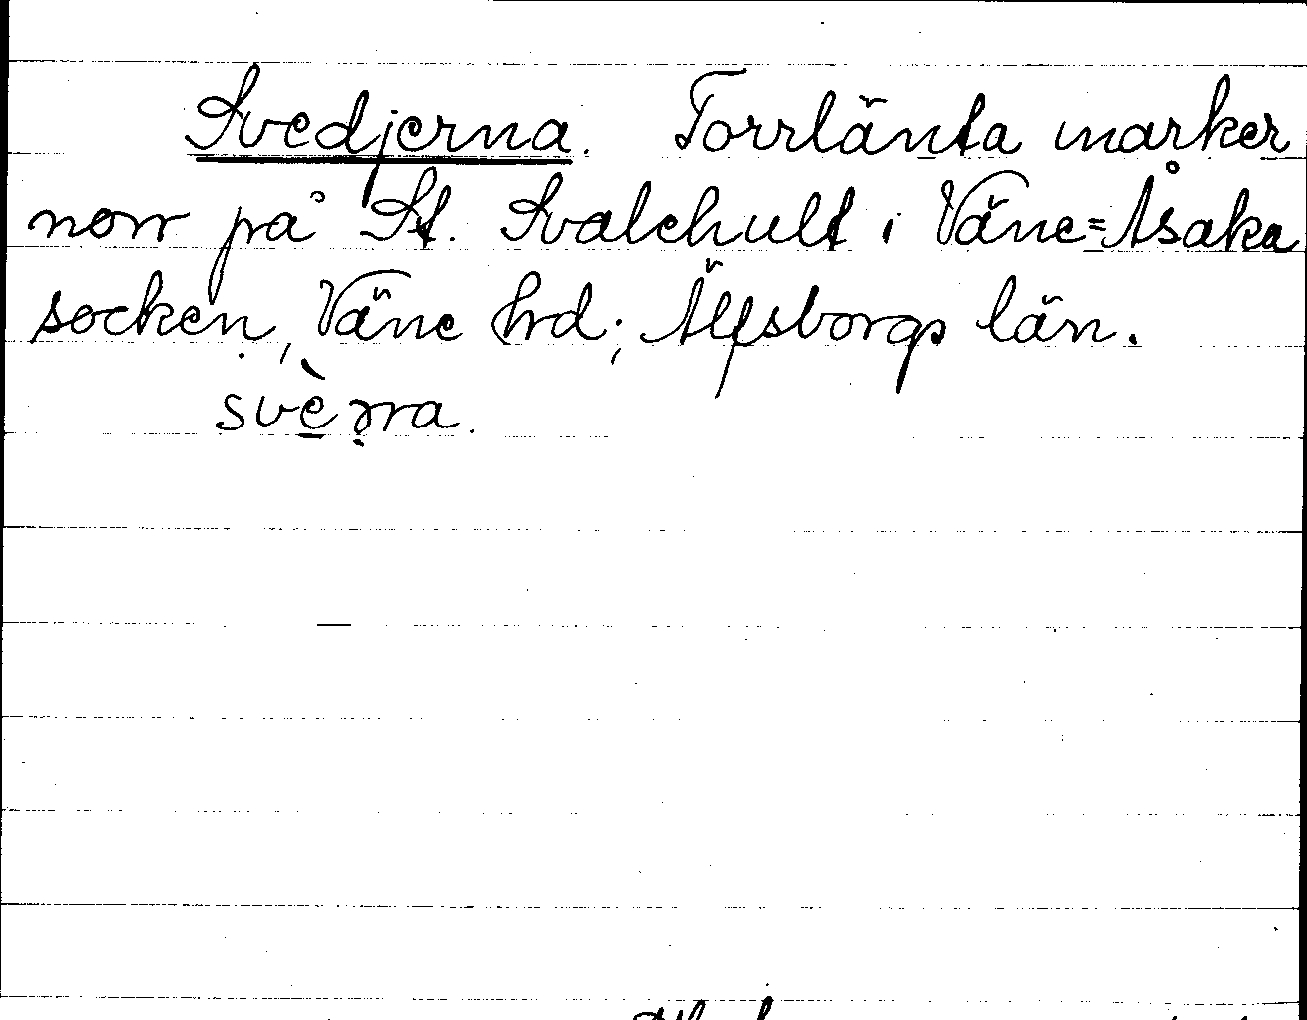 Svedjerna. Torrlänta marker
norr på St. Svalehult i Väne=Åsaka
socken, Väne hrd; Älfsborgs län.